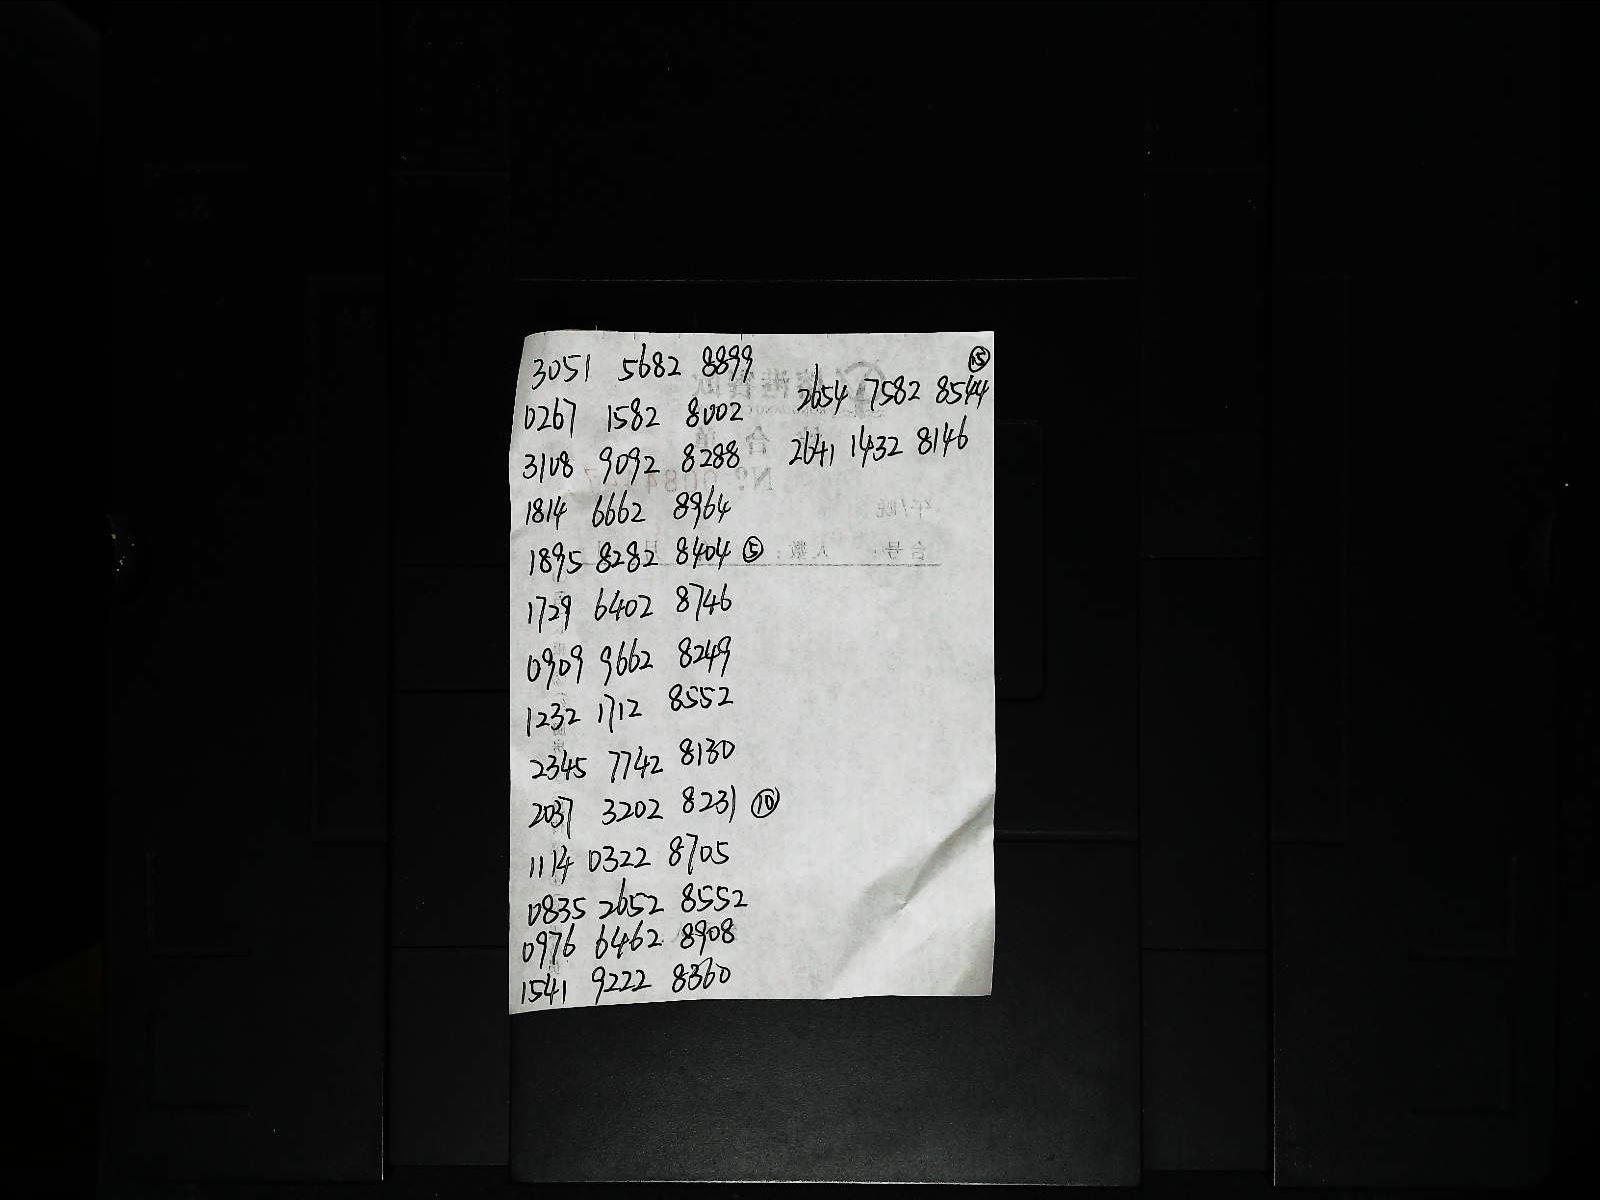 3051 5682 8899
0267 1582 8002
3108 9092 8288
1814 6662 8964
1895 8282 8404 ⑤
1729 6402 8746
0909 9662 8249
1232 1712 8552
2345 7742 8130
2037 3202 8231 ⑩
1114 0322 8705
0835 2652 8552
0976 6462 8908
1541 9222 8360
⑮
2654 7582 8544
2641 1432 8146